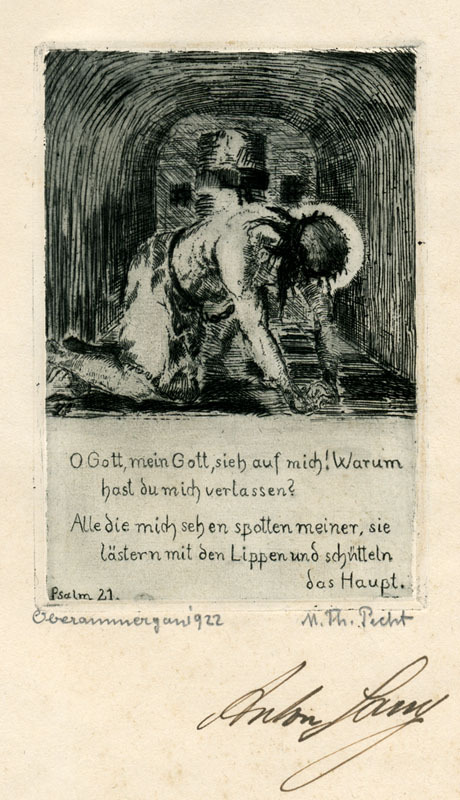 O Gott, mein Gott, sieh auf mich! Warum
hast du mich verlassen?
Alle die mich sehen spotten meiner, sie
lästern mit den Lippen und schütteln
das Haupt.
Psalm 21.
Oberammergau 1922
M. Th. Pecht
Anton Lang